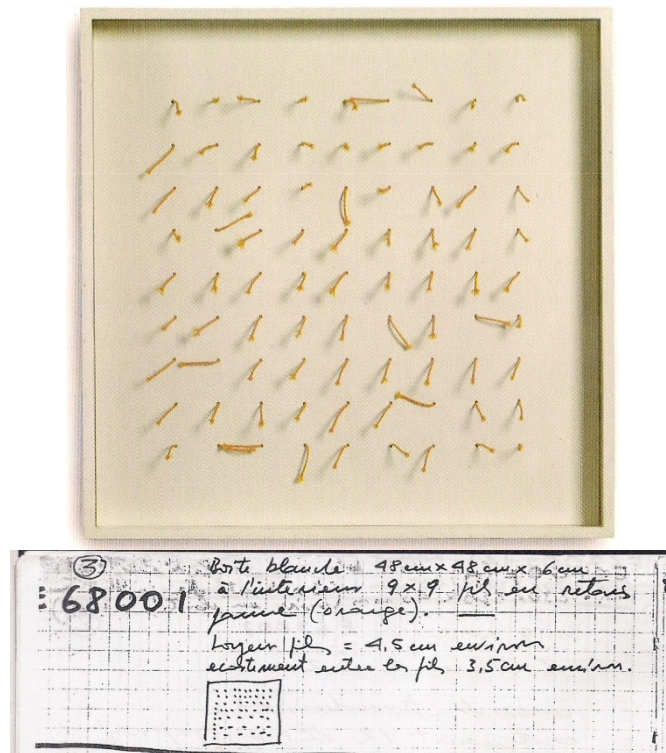 ③
= 68001
Boîte blanche 48cm x 48cm x 6cm
à l'interieur 9 x 9 fils en
jaune (orange).
fils = 4,5 cm environ
entre les fils 3,5cm environ.